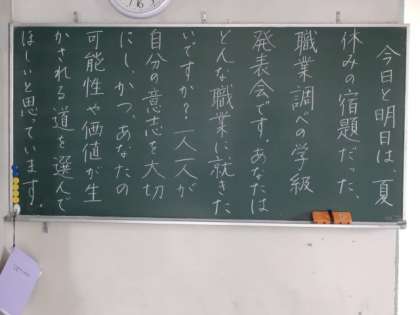 今日と明日は、夏
休みの宿題だった、
職業調べの学級
発表会です。あなたは
どんな職業に就きた
いですか？一人一人が
自分の意志を大切
にし、かつ、あなたの
可能性や価値が生
かされる道を選んで
ほしいと思っています。